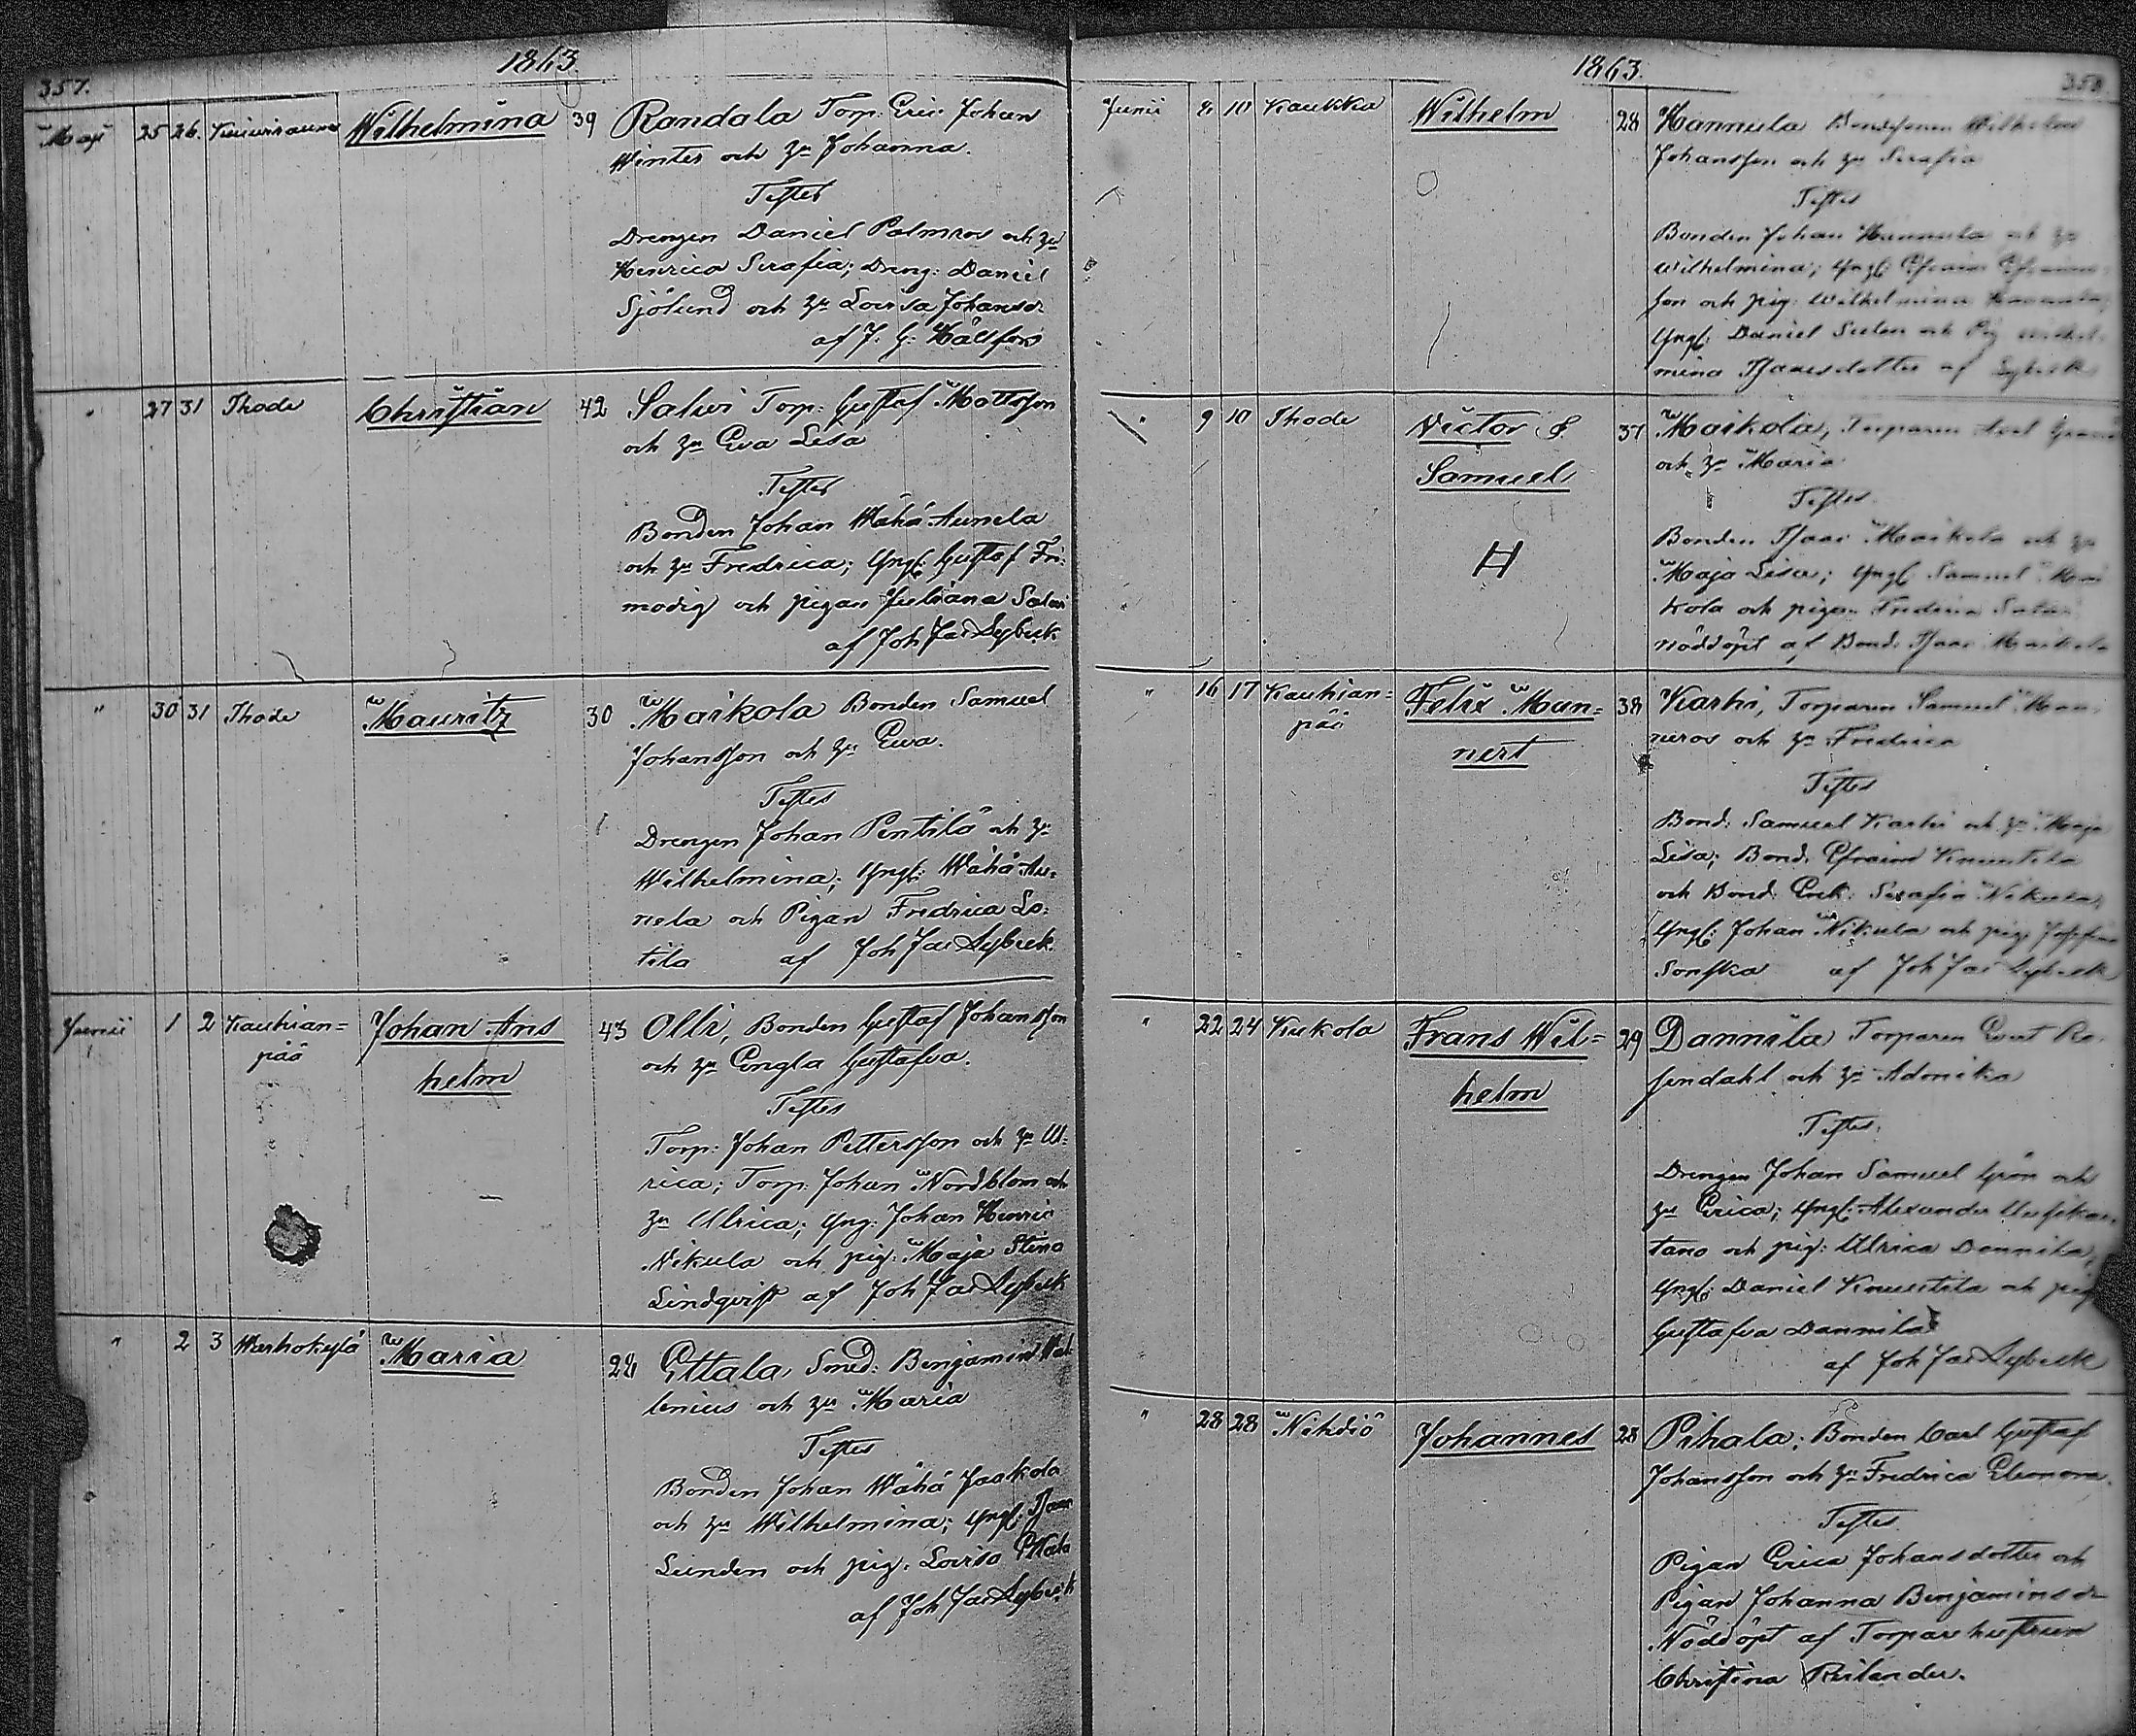 357.
1863.
Maji 25 26. Wilhelmina 39 Randala Torp. Eric Johan
Winter och hu Johanna.
Testes
Drengen Daniel Palmros och hu
Henrica Serafia; Dreng: Daniel
Sjölund och hu Lovisa Johansd:
af J. G. Hällfors
" 27 31 Thode Christian 42 Salvi Torp: Gustaf Mattsson
och hu Eva Lisa
Testes
Bonden Johan Wähä Aunela
och hu Fredrica; Yngl: Gustaf Fri-
modig och pigan Juliana Salvi
af Joh Jac Lybeck
" 30 31 Thode Mauritz 30 Maikola Bonden Samuel
Johansson och hu Eva.
Testes
Drengen Johan Pentilä och hu
Wilhelmina; Yngl: Wähä Au-
nela och Pigan Fredrica Lo-
tila af Joh Jac Lybeck
Junii 1 2 Kauhian= Johan Ans 43 Olli, Bonden Gustaf Johansson
pää helm och hu Engla Gustafva.
Testes
Torp: Johan Pettersson och hu Ul-
rica; Torp: Johan Nordblom och
hu Ulrica; Yng: Johan Henric
Nikula och pig: Maja Stina
Lindqvist af Joh Jac Lybeck
" 2 3 Warhokylä Maria 28 Ettala, Smed: Benjamin Wal
lenius och hu Maria
Testes
Bonden Johan Wähä Jaakola
och hu Wilhelmina; Yngl: Isaac
Lunden och pig: Lovisa Ettala
af Joh Jac Lybeck
1863.
358
Junii 8 10 Kaukka Wilhelm 28 Hannula Bondesonen Wilhelm
Johansson och hu Serafia
Testes
Bonden Johan Hannula och hu
Wilhelmina; Yngl: Efraim Efraims-
son och pig: Wilhelmina Hannula,
Yngl: Daniel och Pig Wilhel-
mina Isaacsdotter af Lybeck
" 9 10 Thode Victor & 37 Maikola, Torparen
Samuel och hu Maria
Testes
H Bonden Isaac Maikola och hu
Maja Lisa; Yngl Samuel Mai
kola och pigan Fredrica
nöddöpt af Bond: Isaac Maikola
" 16 17 Kauhian= Felix Man= 38 Karhi, Torparen Samuel Man-
pää nert neros och hu Fredrica
Testes
Bond: Samuel Karhi och hu Maja
Lisa; Bond: Efraim Knuutila
och Bond: Enk: Serafia Nikula,
Yngl: Johan Nikula och pig: Josefina
Sonska af Joh Jac Lybeck
" 22 24 Kukola Frans Wil= 29 Dannila Torparen Ro-
helm sendahl och hu Adonika
Testes.
Drengen Johan Samuel Grön och
hu Erica; Yngl: Alexander
tano och pig: Ulrica Dannila,
Yngl: Daniel Knuutila och pig
Gustafva Dannila
af Joh Jac Lybeck
" 28 28 Nihdiö Johannes 28 Pihala; Bonden Carl Gustaf
Johansson och hu Fredrica Eleonora.
Testes
Pigan Erica Johansdotter och
Pigan Johanna Benjaminsd:
Nöddöpt af Torpare hustrun
Christina Reilander.